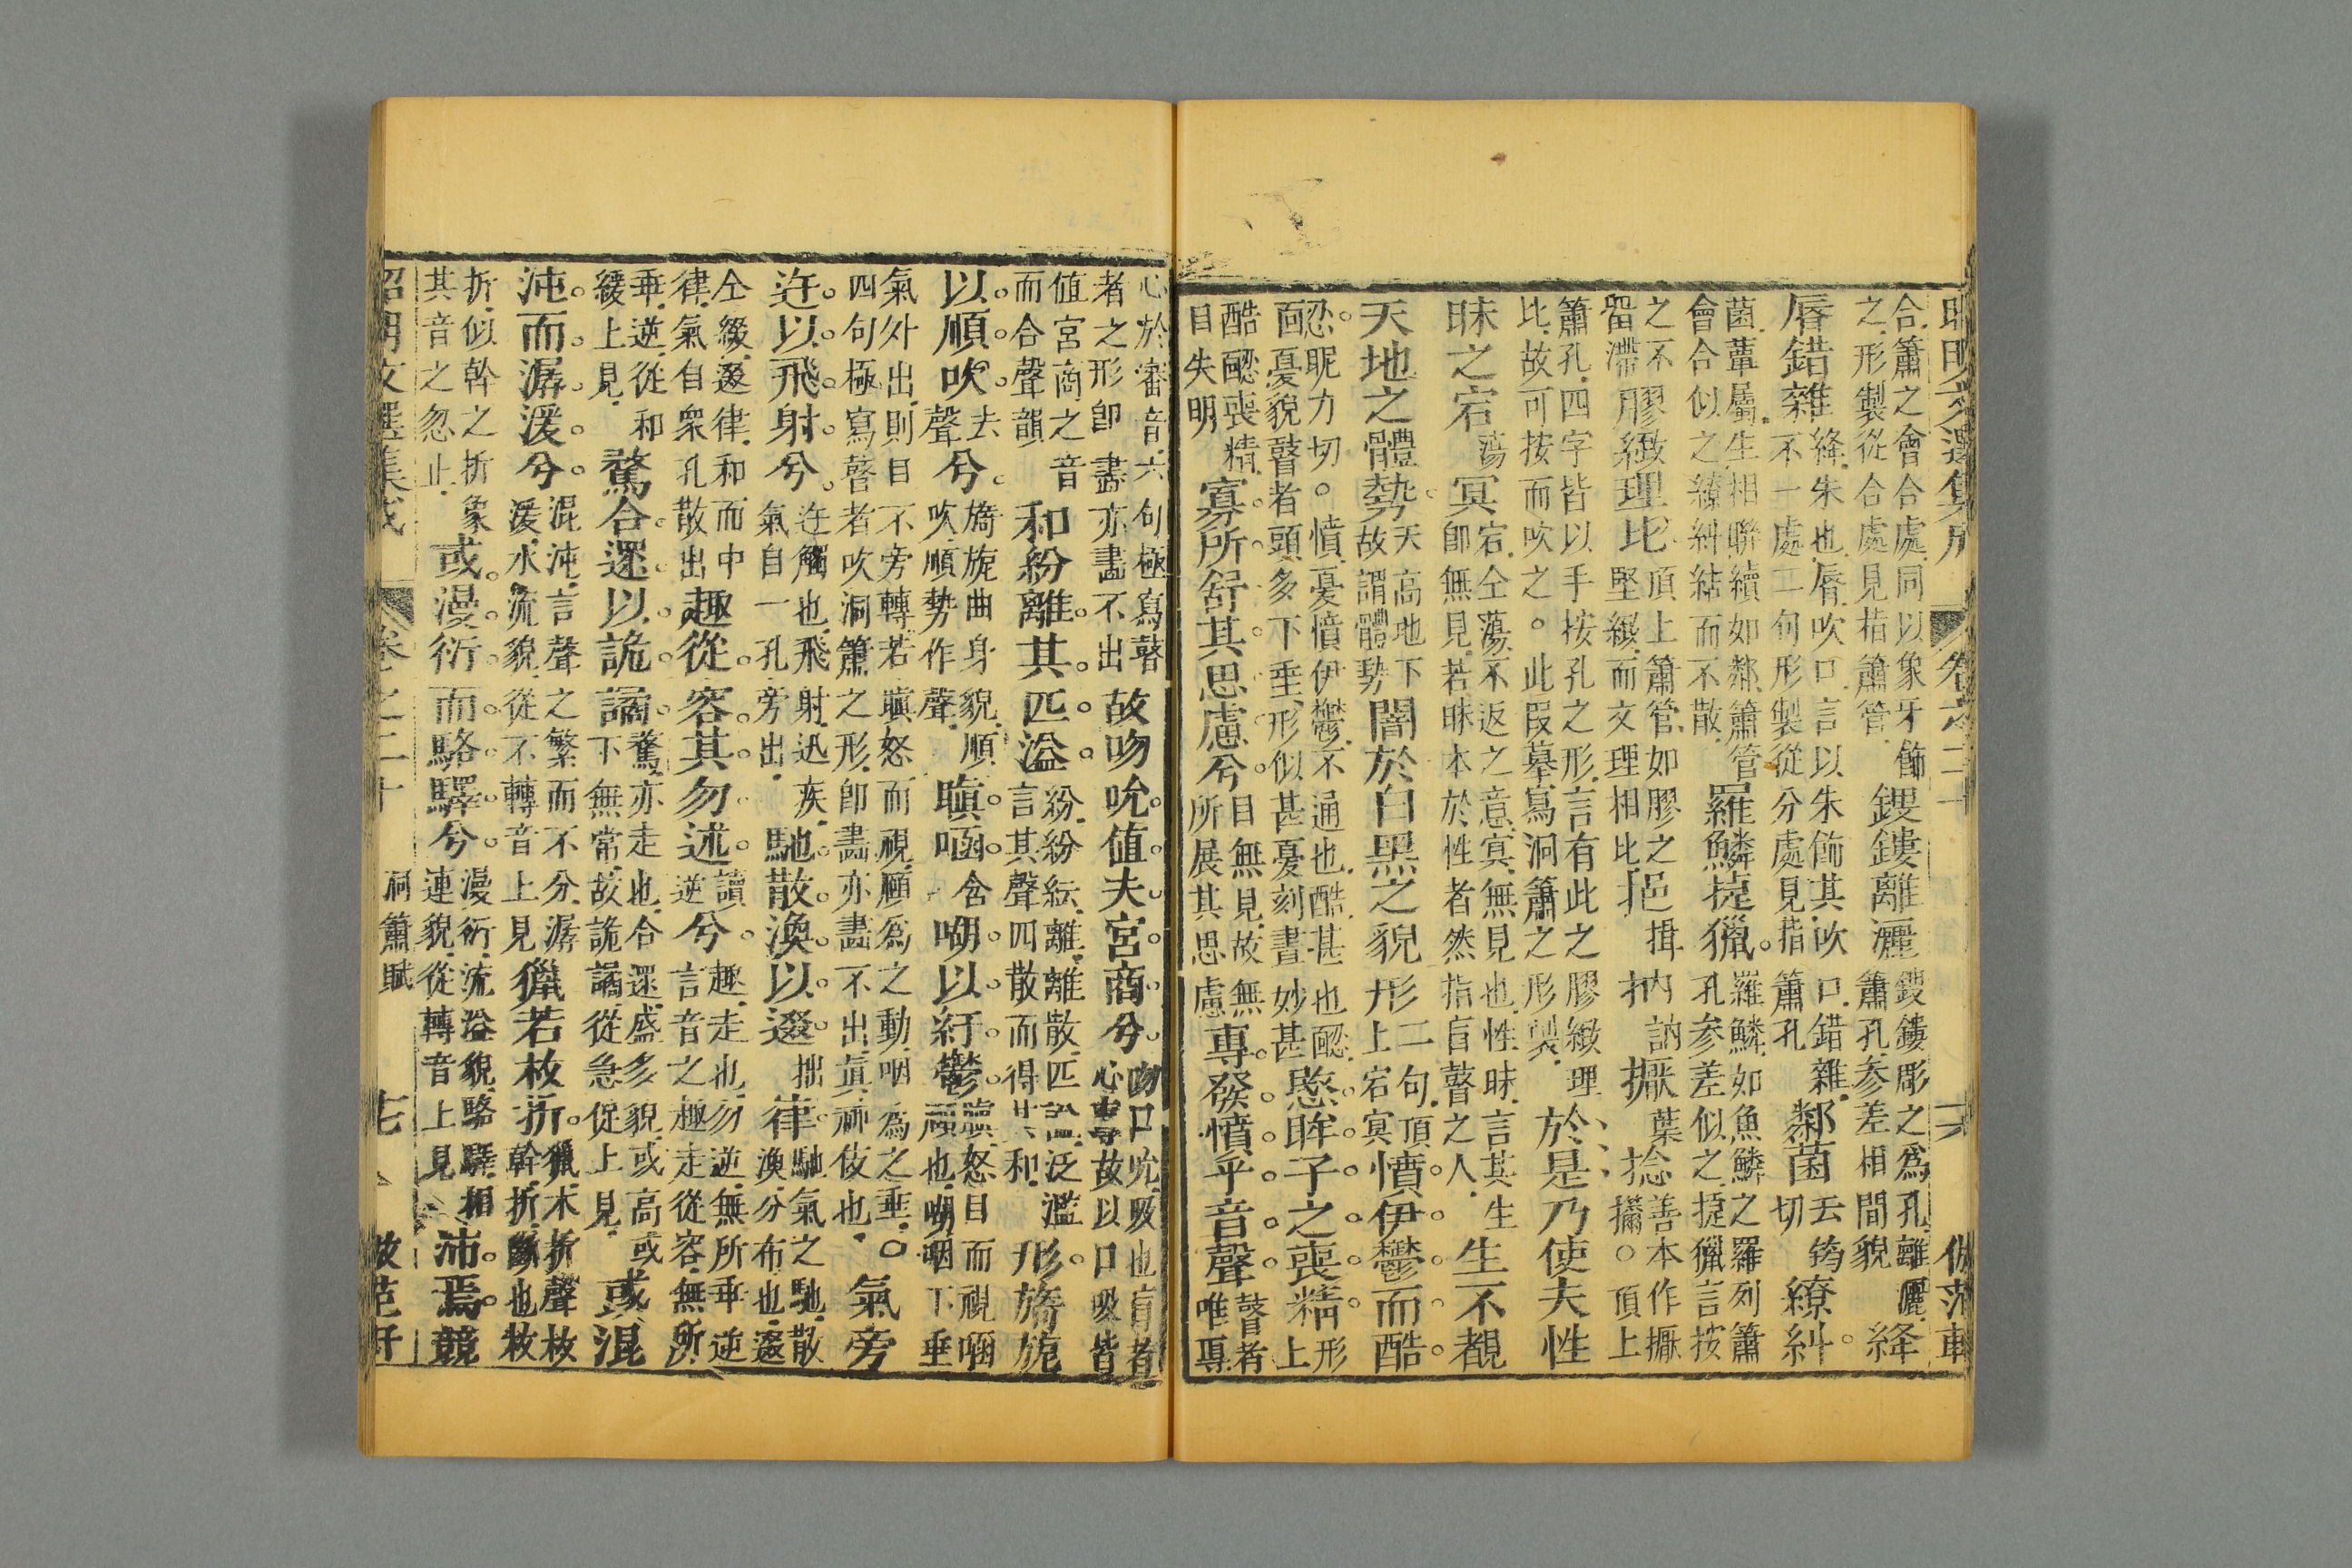 昭明文選集成 卷之二十 十六 倣范軒
合簫之會合處同以象牙飾
之形製從合處見指簫管 鎪鏤離灑 鎪鏤彫之爲孔離灑
簫孔參差相間貌 絳
脣錯雜 絳朱也脣吹口言以朱飾其吹口錯雜
不一處二句形製從分處見指簫孔 鄰菌 去筠切 繚糾
菌葦屬生相聯續如鄰簫管
會合似之繚糾結而不散 羅鱗捷獵 羅鱗如魚鱗之羅列簫
孔參差似之捷獵言按
之不 膠緻理比 頂上簫管如膠之
留滯 堅緻而文理相比 挹 揖 抐 訥 擫 葉 捻 善本作擫
攝○頂上
簫孔四字皆以手按孔之形言有此之膠緻理
比故可按而吹之○此段摹寫洞簫之形製 於是乃使夫性
昧之宕 蕩 冥 宕仝蕩不返之意冥無見也性昧言其生
卽無見若昧本於性者然指盲瞽之人 生不覩
天地之體勢 天高地下
故謂體勢 闇於白黑之貌 形二句頂
上宕冥 憤伊鬱而酷
㥾 昵力切○憤憂憤伊鬱不通也酷甚也㥾
面憂貌瞽者頭多下垂形似甚憂刻畫妙甚 愍眸子之喪精 形上
酷㥾喪精
目失明 寡所舒其思慮兮 目無見故無
所展其思慮 專發憤乎音聲 瞽者
唯專
心於審音六句極寫瞽
者之形卽畫亦畫不出 故吻吮值夫宮商兮 吻口吮吸也盲者
心專故以口吸皆
值宮商之音
而合聲韻 和紛離其匹溢 紛紛紜離離散匹訟泛濫
言其聲四散而得其和 形旖旎
以順吹 去聲 兮 旖旎曲身貌順
吹順勢作聲 瞋㖤 含 㗅以紆鬱 瞋怒目而視㖤
頤也㗅咽下垂
氣外出則目不旁轉若瞋怒而視頤爲之動咽爲之垂○
四句極寫瞽者吹洞簫之形卽畫亦畫不出眞神伎也 氣旁
迕以飛射兮 迕觸也飛射迅疾
氣自一孔旁出 馳散渙以逫 拙 律 馳氣之馳散
渙分布也逫
仝綴逫律和而中
律氣自衆孔散出 趣從容其勿述 讀逆 兮 趣走也勿逆無所乖逆
言音之趣走從容無所
乖逆從和
緩上見 騖合還以詭譎 騖亦走也合還盛多貌或高或
下無常故詭譎從急促上見 或混
沌而潺湲兮 混沌言聲之繁而不分潺
湲水流貌從不轉音上見 獵若枚折 獵木折聲枚
幹折緣也枚
折似幹之折象
其音之忽止 或漫衍而駱驛兮 漫衍流溢貌駱驛相
連貌從轉音上見 沛焉競
昭明文選集成 卷之二十 洞簫賦 十七 倣范軒